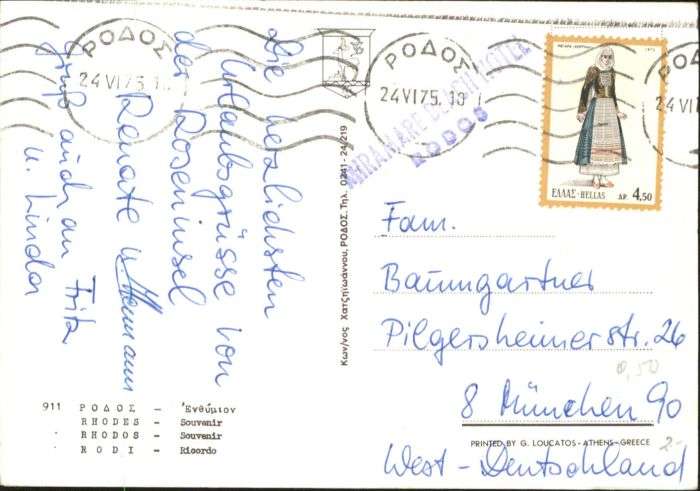 Die herzlichsten
Urlaubsgrüsse von
der Roseninsel
Renate u. Hermann
Gruß auch an Fritz
u. Linda
ΡΟΔΟΣ
24 VI 75. 10
ΡΟΔΟΣ
24 VI 75. 10
ΡΟ
24 VI
MIRAMARE BEACH HOTEL
RODOS
ΕΛΛΑΣ-HELLAS ΔΡ. 4,50
Κων/νος Χατζηϊωάννου, ΡΟΔΟΣ. Τηλ. 0241-24/219
Fam.
Baumgartner
Pilgersheimerstr. 26
8 München 90
West-Deutschland
0,50
2-
911 ΡΟΔΟΣ - Ἐνθύμιον
RHODES - Souvenir
RHODOS - Souvenir
RODI - Ricordo
PRINTED BY G. LOUCATOS-ATHENS-GREECE